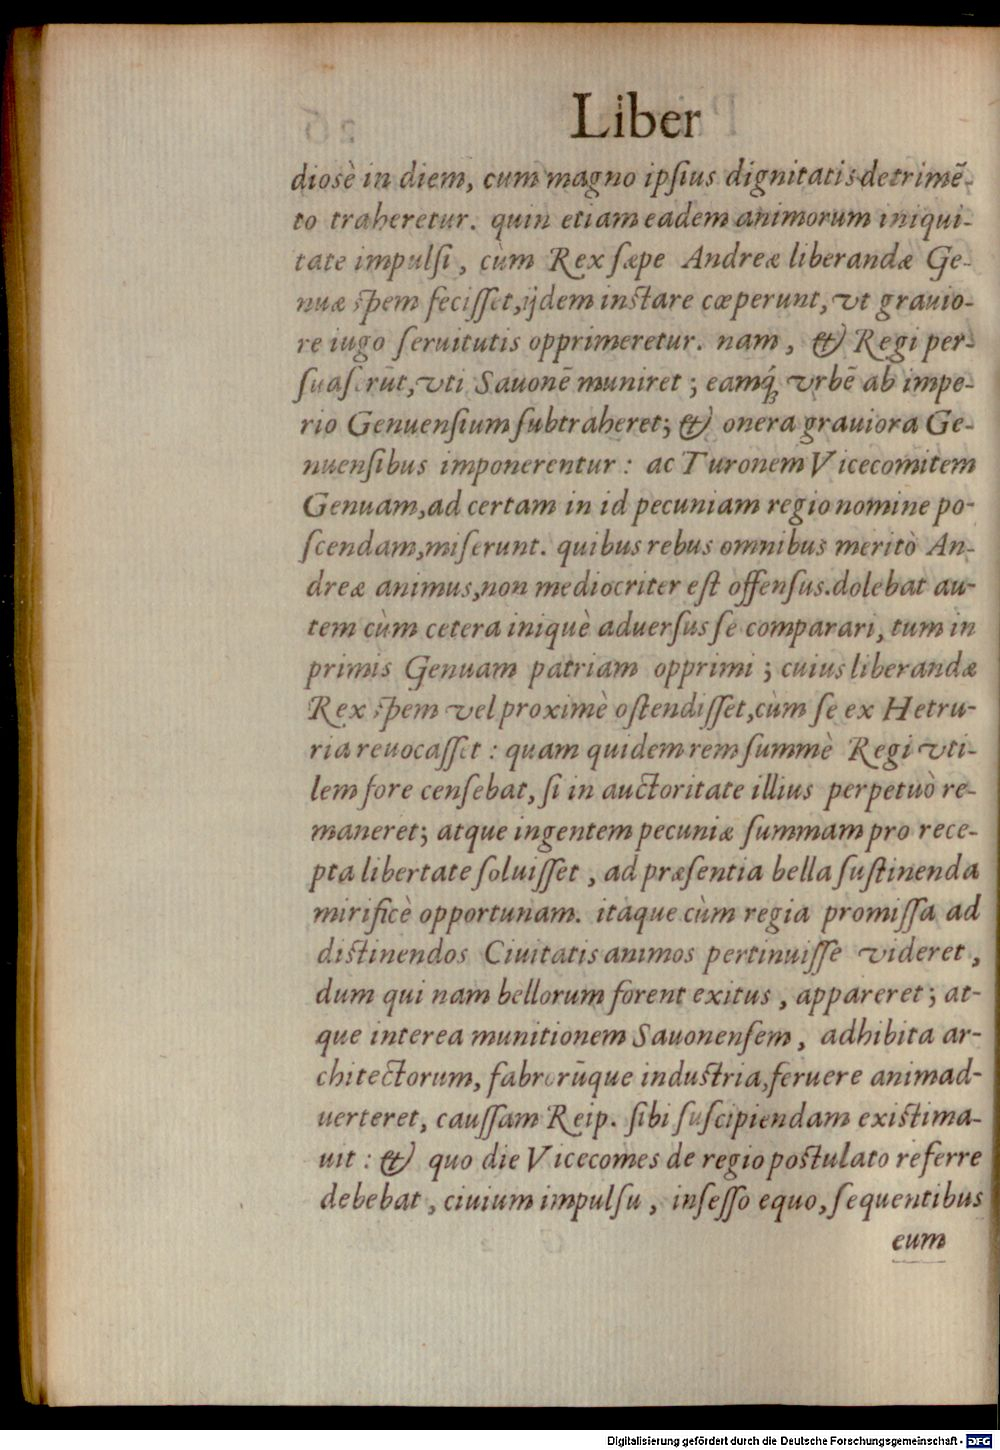 Liber
diosè in diem, cum magno ipſius dignitatis detrimē-
to traheretur. quin etiam eadem animorum iniqui-
tate impulſi, cùm Rex ſæpe Andreæ liberandæ Ge-
nuæ ſpem feciſſet, ijdem inſtare cœperunt, vt grauio-
re iugo ſeruitutis opprimeretur. nam, & Regi per-
ſuaſerūt, vti Sauonē muniret; eamq́; vrbē ab impe-
rio Genuenſium ſubtraheret; & onera grauiora Ge-
nuenſibus imponerentur: ac Turonem Vicecomitem
Genuam, ad certam in id pecuniam regio nomine po-
ſcendam, miſerunt. quibus rebus omnibus meritò An-
dreæ animus, non mediocriter eſt offenſus. dolebat au-
tem cùm cetera iniquè aduerſus ſe comparari, tum in
primis Genuam patriam opprimi; cuius liberandæ
Rex ſpem vel proximè oſtendiſſet, cùm ſe ex Hetru-
ria reuocaſſet: quam quidem rem ſummè Regi vti-
lem fore cenſebat, ſi in auctoritate illius perpetuò re-
maneret; atque ingentem pecuniæ ſummam pro rece-
pta libertate ſoluiſſet, ad præſentia bella ſuſtinenda
mirificè opportunam. itaque cùm regia promiſſa ad
diſtinendos Ciuitatis animos pertinuiſſe videret,
dum qui nam bellorum forent exitus, appareret; at-
que interea munitionem Sauonenſem, adhibita ar-
chitectorum, fabrorūque induſtria, feruere animad-
uerteret, cauſſam Reip. ſibi ſuſcipiendam exiſtima-
uit: & quo die Vicecomes de regio poſtulato referre
debebat, ciuium impulſu, inſeſſo equo, ſequentibus
eum
Digitalisierung gefördert durch die Deutsche Forschungsgemeinschaft - DFG